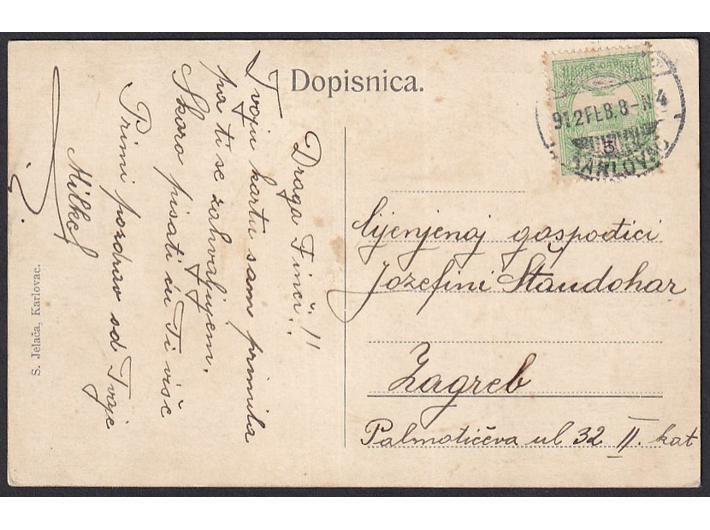 Dopisnica.
912 FEB. 8-N4
KARLOVAC
Draga Finči!!
Tvoju kartu sam primila
pa ti se zahvaljujem.
Skoro pisati ću Ti više
Primi pozdrav od Tvoje
Milke
S. Jelača, Karlovac.
Cijenjenoj gospođici
Jozefini Štaudohar
Zagreb
Palmotićeva ul 32 II. kat